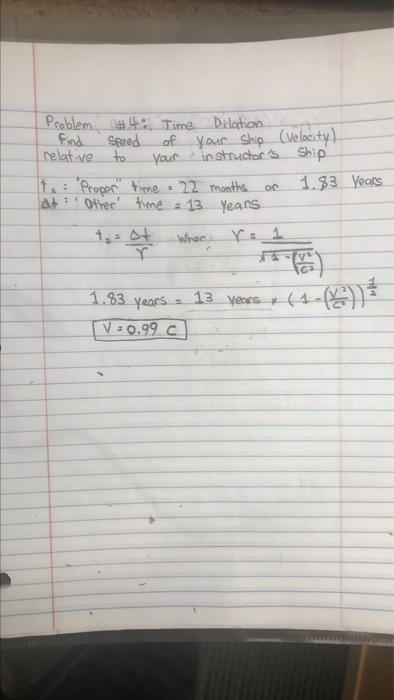 Problem #4: Time Dilation
Find speed of your ship (velocity)
relative to your instructor's ship
t₀ : "Proper" time = 22 months or 1.83 years
Δt : 'Other' time = 13 years
t₀ = Δt/γ wher γ = 1/√(1-(v²/c²))
1.83 years = 13 years * (1-(v²/c²))^(1/2)
V = 0.99 c